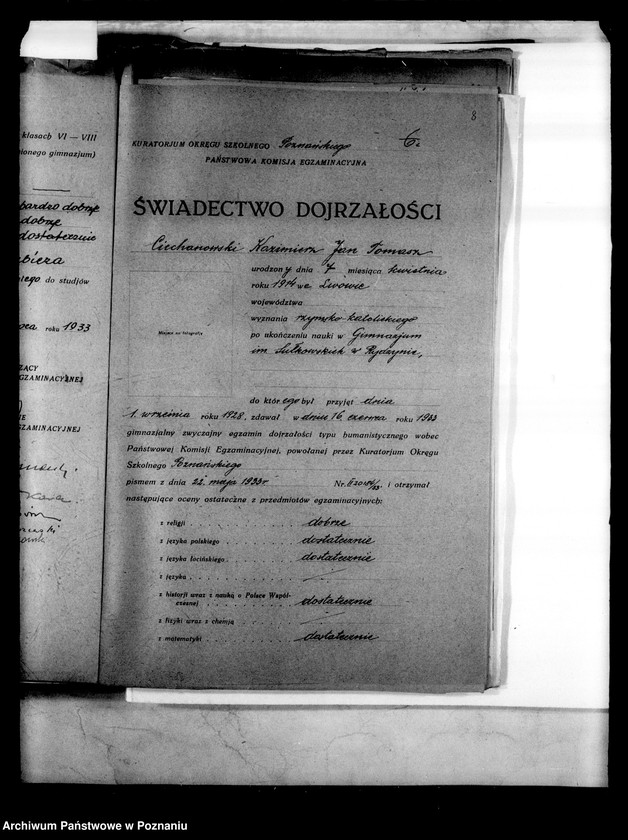 klasach VI — VIII
ionego gimnazjum)
bardzo dobrze
dobrze
dostatecznie
biera
ego do studjów
roku 1933
ZĄCY
GZAMINACYJNEJ
IE
GZAMINACYJNEJ
8
6.
KURATORJUM OKRĘGU SZKOLNEGO Poznańskiego
PAŃSTWOWA KOMISJA EGZAMINACYJNA
ŚWIADECTWO DOJRZAŁOŚCI
Ciechanowski Kazimierz Jan Tomasz
urodzony dnia 7 miesiąca kwietnia
roku 1914 we Lwowie
województwa
wyznania rzymsko-katolickiego
Miejsce na fotografję
po ukończeniu nauki w Gimnazjum
im. Sułkowskich w Rydzynie,
do którego był przyjęt dnia
1. września roku 1928 zdawał w dniu 16. czerwca roku 1933
gimnazjalny zwyczajny egzamin dojrzałości typu humanistycznego wobec
Państwowej Komisji Egzaminacyjnej, powołanej przez Kuratorjum Okręgu
Szkolnego Poznańskiego
pismem z dnia 22. maja 1933 r. Nr. i otrzymał
następujące oceny ostateczne z przedmiotów egzaminacyjnych:
z religji dobrze
z języka polskiego dostatecznie
z języka łacińskiego dostatecznie
z języka
z historji wraz z nauką o Polsce Współ-
czesnej dostatecznie
z fizyki wraz z chemją
z matematyki dostatecznie
Archiwum Państwowe w Poznaniu